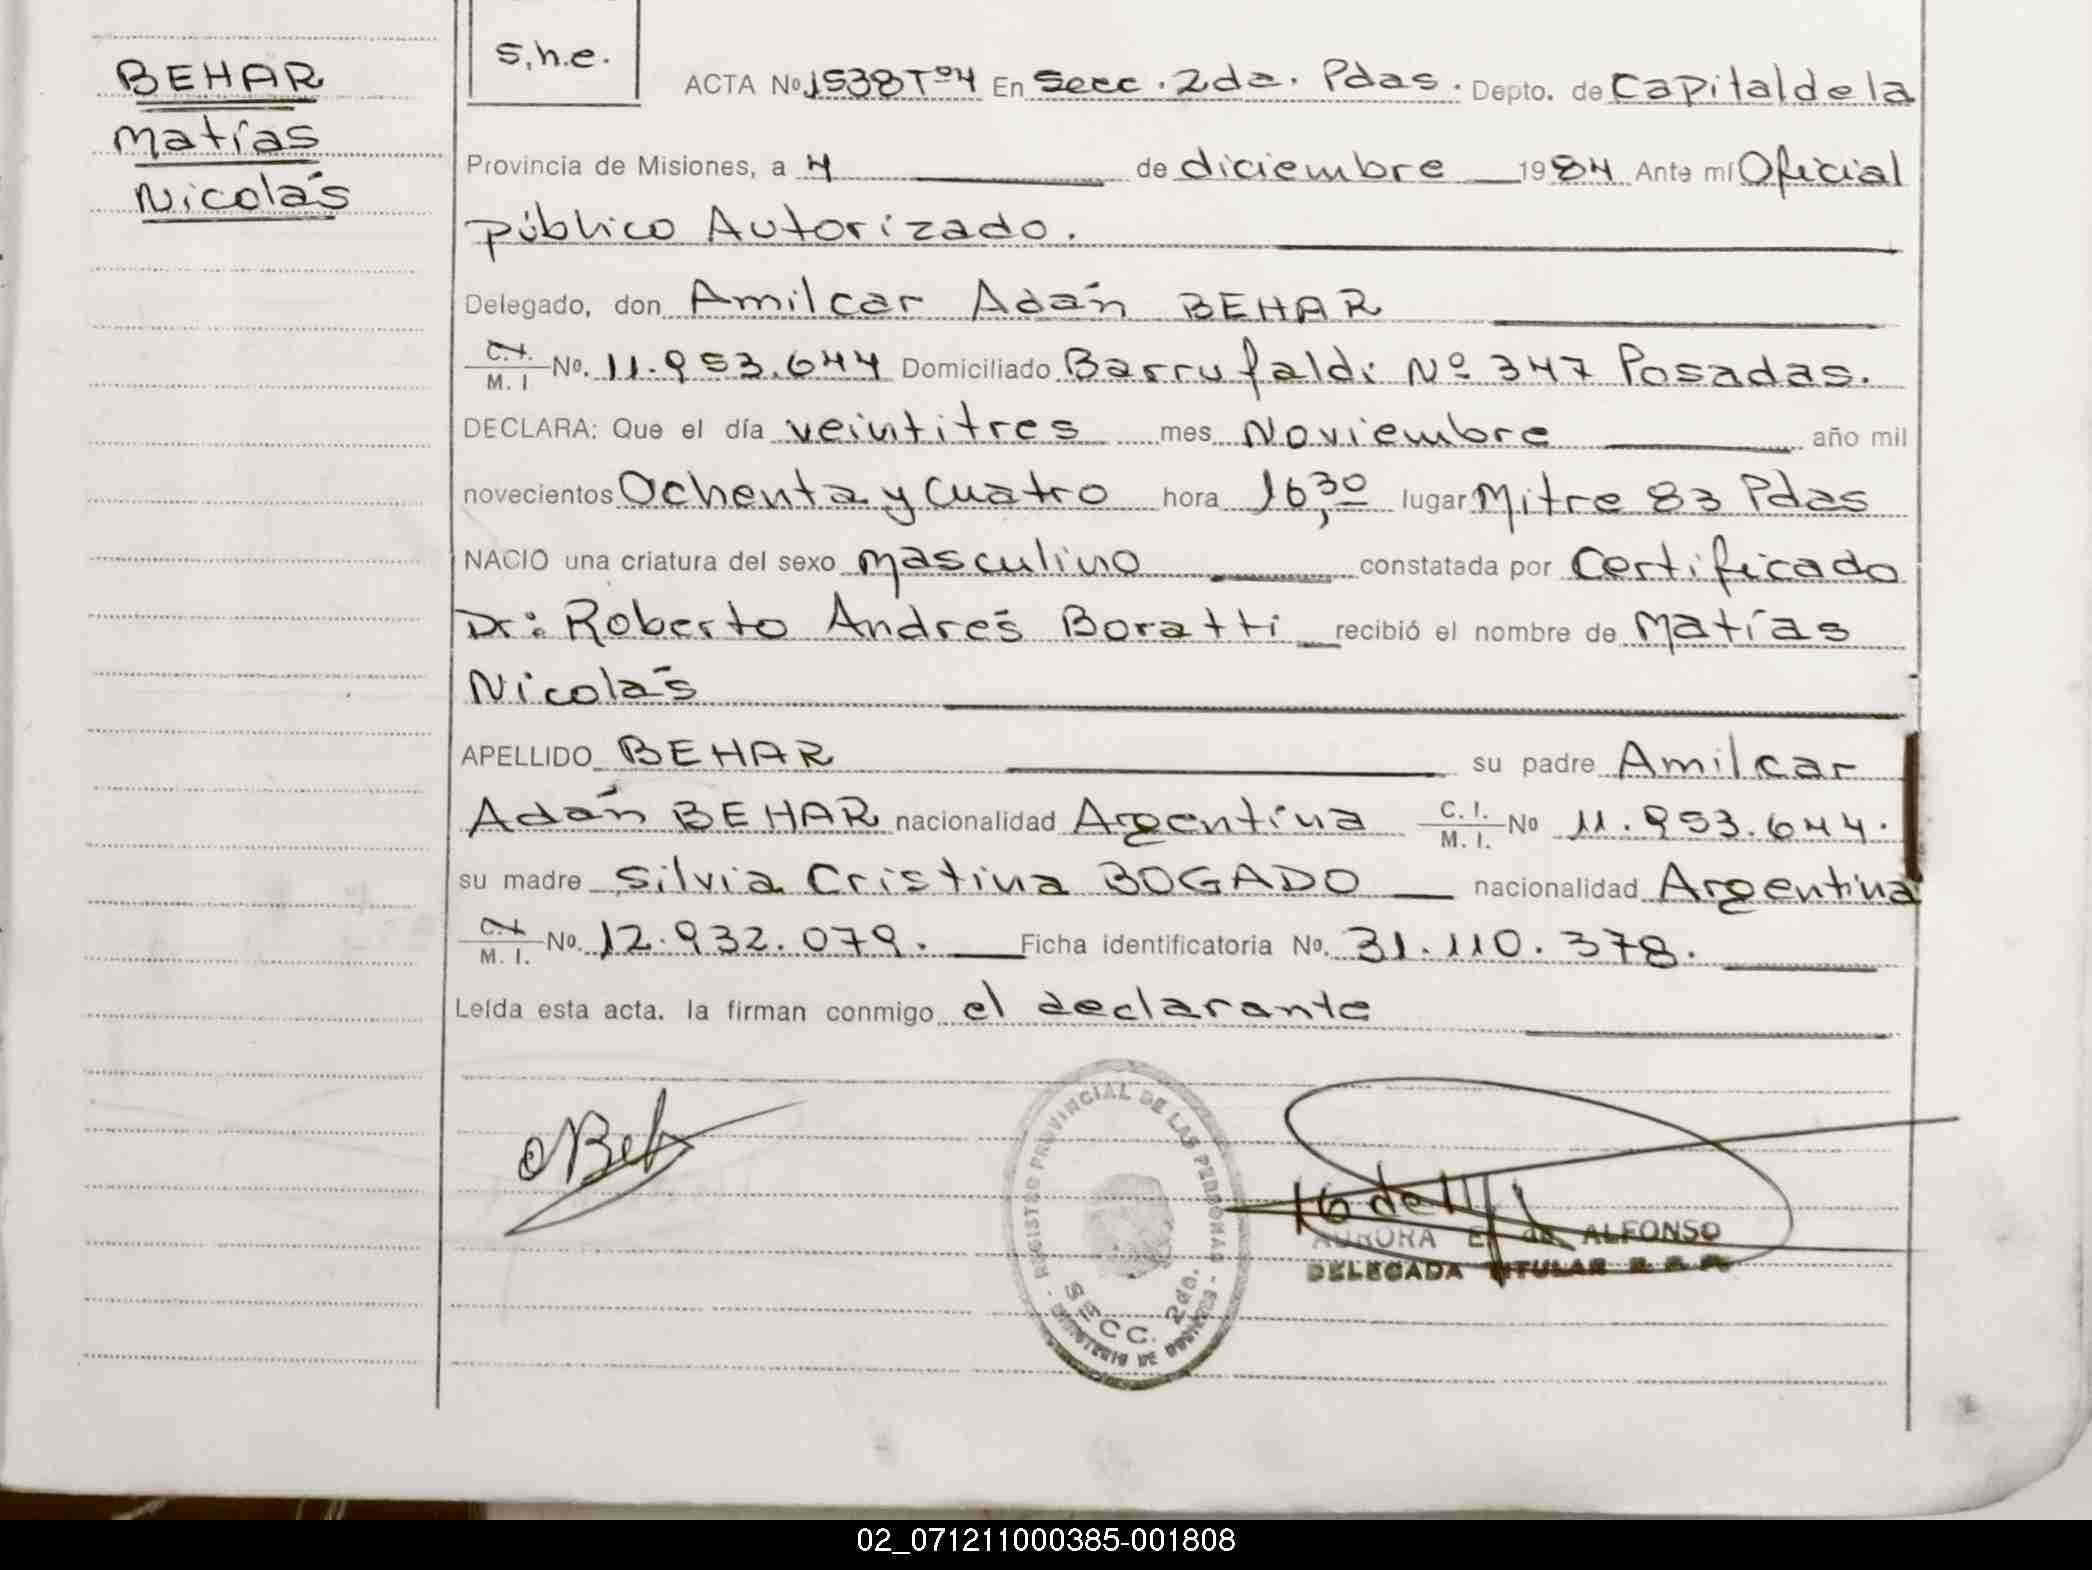 s.h.e.
BEHAR
Matías
Nicolás
ACTA Nº 1538 Tº4 En Secc. 2da. Pdas. Depto. de Capital de la
Provincia de Misiones, a 4 de diciembre 1984 Ante mí Oficial
público Autorizado.
Delegado, don Amilcar Adán BEHAR
C.I. M. I Nº. 11.953.644 Domiciliado Barrufaldi Nº 347 Posadas.
DECLARA: Que el día veintitres mes Noviembre año mil
novecientos Ochenta y Cuatro hora 16,30 lugar Mitre 83 Pdas
NACIO una criatura del sexo masculino constatada por Certificado
Dr: Roberto Andrés Boratti recibió el nombre de Matías
Nicolás
APELLIDO BEHAR su padre Amilcar
Adán BEHAR nacionalidad Argentina C. I. M. I. Nº 11.953.644.
su madre Silvia Cristina BOGADO nacionalidad Argentina
C.I. M. I. Nº. 12.932.079. Ficha identificatoria Nº. 31.110.378.
Leída esta acta. la firman conmigo el declarante
REGISTRO PROVINCIAL DE LAS PERSONAS
SECC. 2da.
MINISTERIO DE GOBIERNO
AURORA E. de ALFONSO
DELEGADA TITULAR R. P. P.
02_071211000385-001808